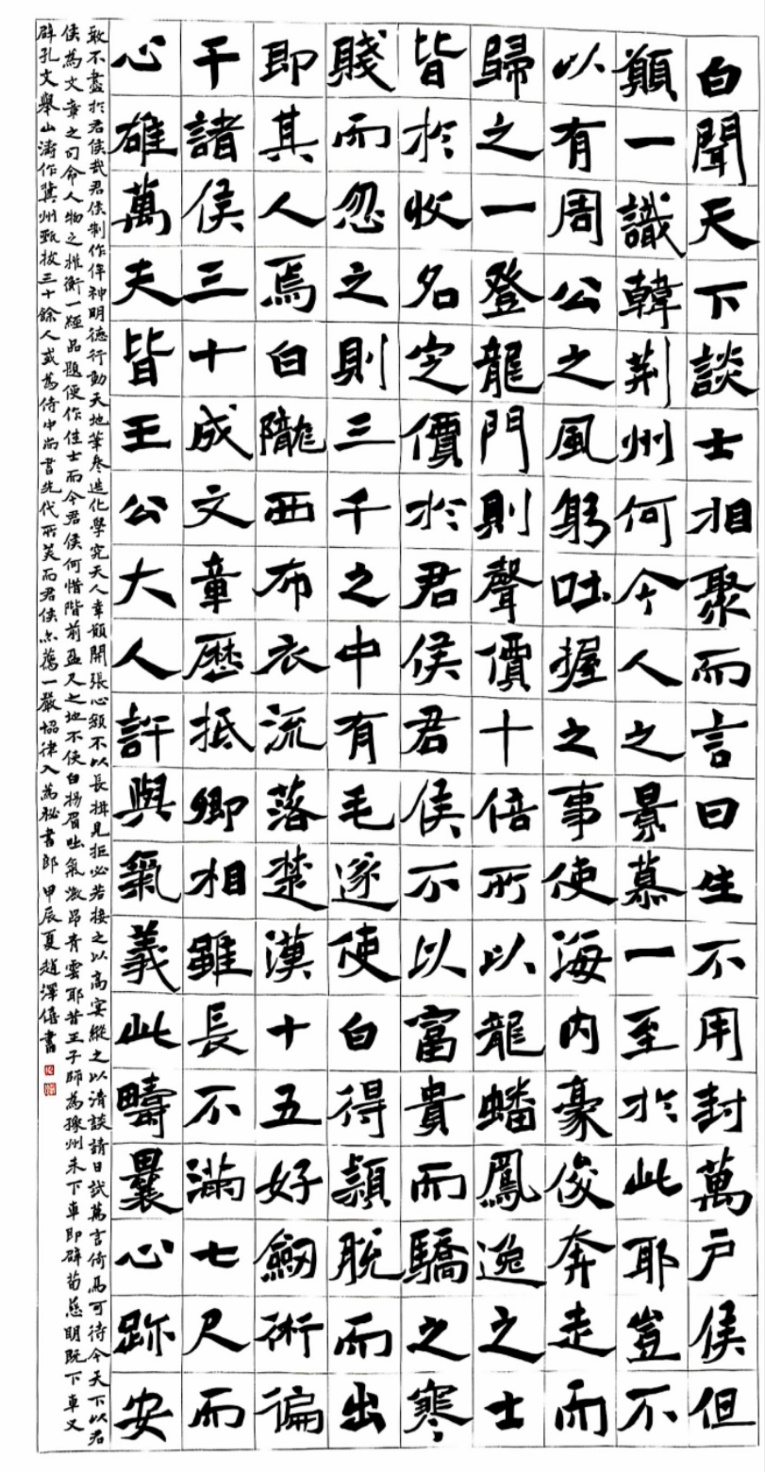 白聞天下談士相聚而言曰生不用封萬戶侯但
願一識韓荊州何今人之景慕一至於此耶豈不
以有周公之風躬吐握之事使海內豪俊奔走而
歸之一登龍門則聲價十倍所以龍蟠鳳逸之士
皆於收名定價於君侯君侯不以富貴而驕之寒
賤而忽之則三千之中有毛遂使白得穎脫而出
即其人焉白隴西布衣流落楚漢十五好劒術徧
干諸侯三十成文章歷抵卿相雖長不滿七尺而
心雄萬夫皆王公大人許與氣義此疇曩心跡安
敢不盡於君侯哉君侯制作侔神明德行動天地筆參造化學究天人幸願開張心顏不以長揖見拒必若接之以高宴縱之以清談請日試萬言倚馬可待今天下以君
侯為文章之司命人物之權衡一經品題便作佳士而今君侯何惜階前盈尺之地不使白揚眉吐氣激昂青雲耶昔王子師為豫州未下車即辟荀慈明既下車又
辟孔文舉山濤作冀州甄拔三十餘人或為侍中尚書先代所美而君侯亦薦一嚴協律入為秘書郎甲辰夏趙澤書